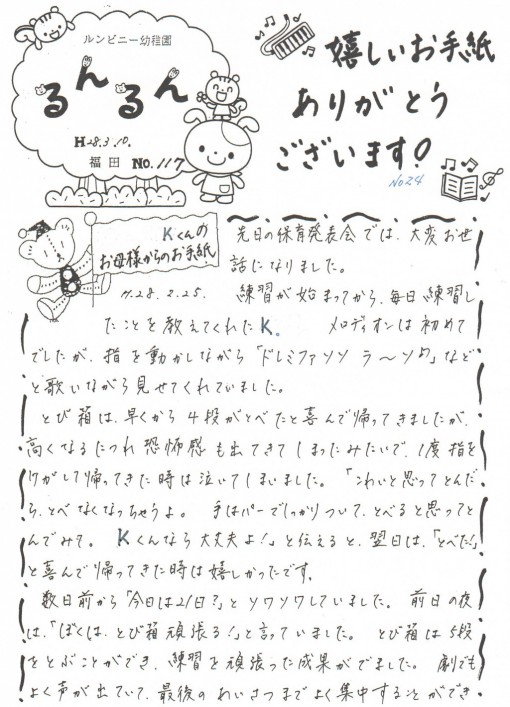 ルンビニー幼稚園
るんるん
H28.3.10.
福田 No.117
嬉しいお手紙
ありがとう
ございます!
No24
Kくんの
お母様からのお手紙
H.28.2.25.
先日の保育発表会では、大変お世
話になりました。
練習が始まってから、毎日練習し
たことを教えてくれたK. メロディオンは初めて
でしたが、指を動かしながら「ドレミファソソ ラ〜ソめ」など
と歌いながら見せてくれていました。
とび箱は、早くから4段がとべたと喜んで帰ってきましたが、
高くなるにつれ恐怖感も出てきてしまったみたいで、1度指を
けがして帰ってきた時は泣いてしまいました。「こわいと思ってとんだ
ら、とべなくなっちゃうよ。手はパーでしっかりついて、とべると思ってと
んでみて。Kくんなら大丈夫よ!」と伝えると、翌日は、「とべた!」
と喜んで帰ってきた時は嬉しかったです。
数日前から「今日は21日?」とソワソワしていました。前日の夜
は、「ぼくは、とび箱頑張る!」と言っていました。とび箱は5段
をとぶことができ、練習を頑張った成果がでました。劇でも
よく声が出ていて、最後のあいさつまでよく集中することができ